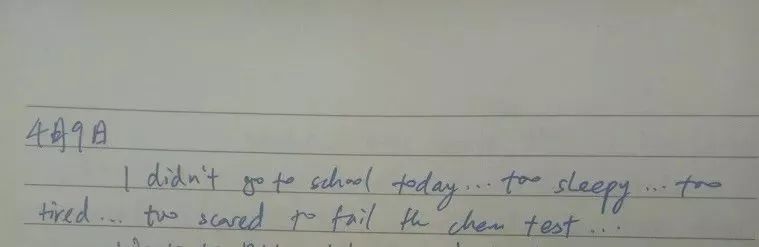 4月9日
I didn't go to school today... too sleepy... too
tired... too scared to fail th chem test...